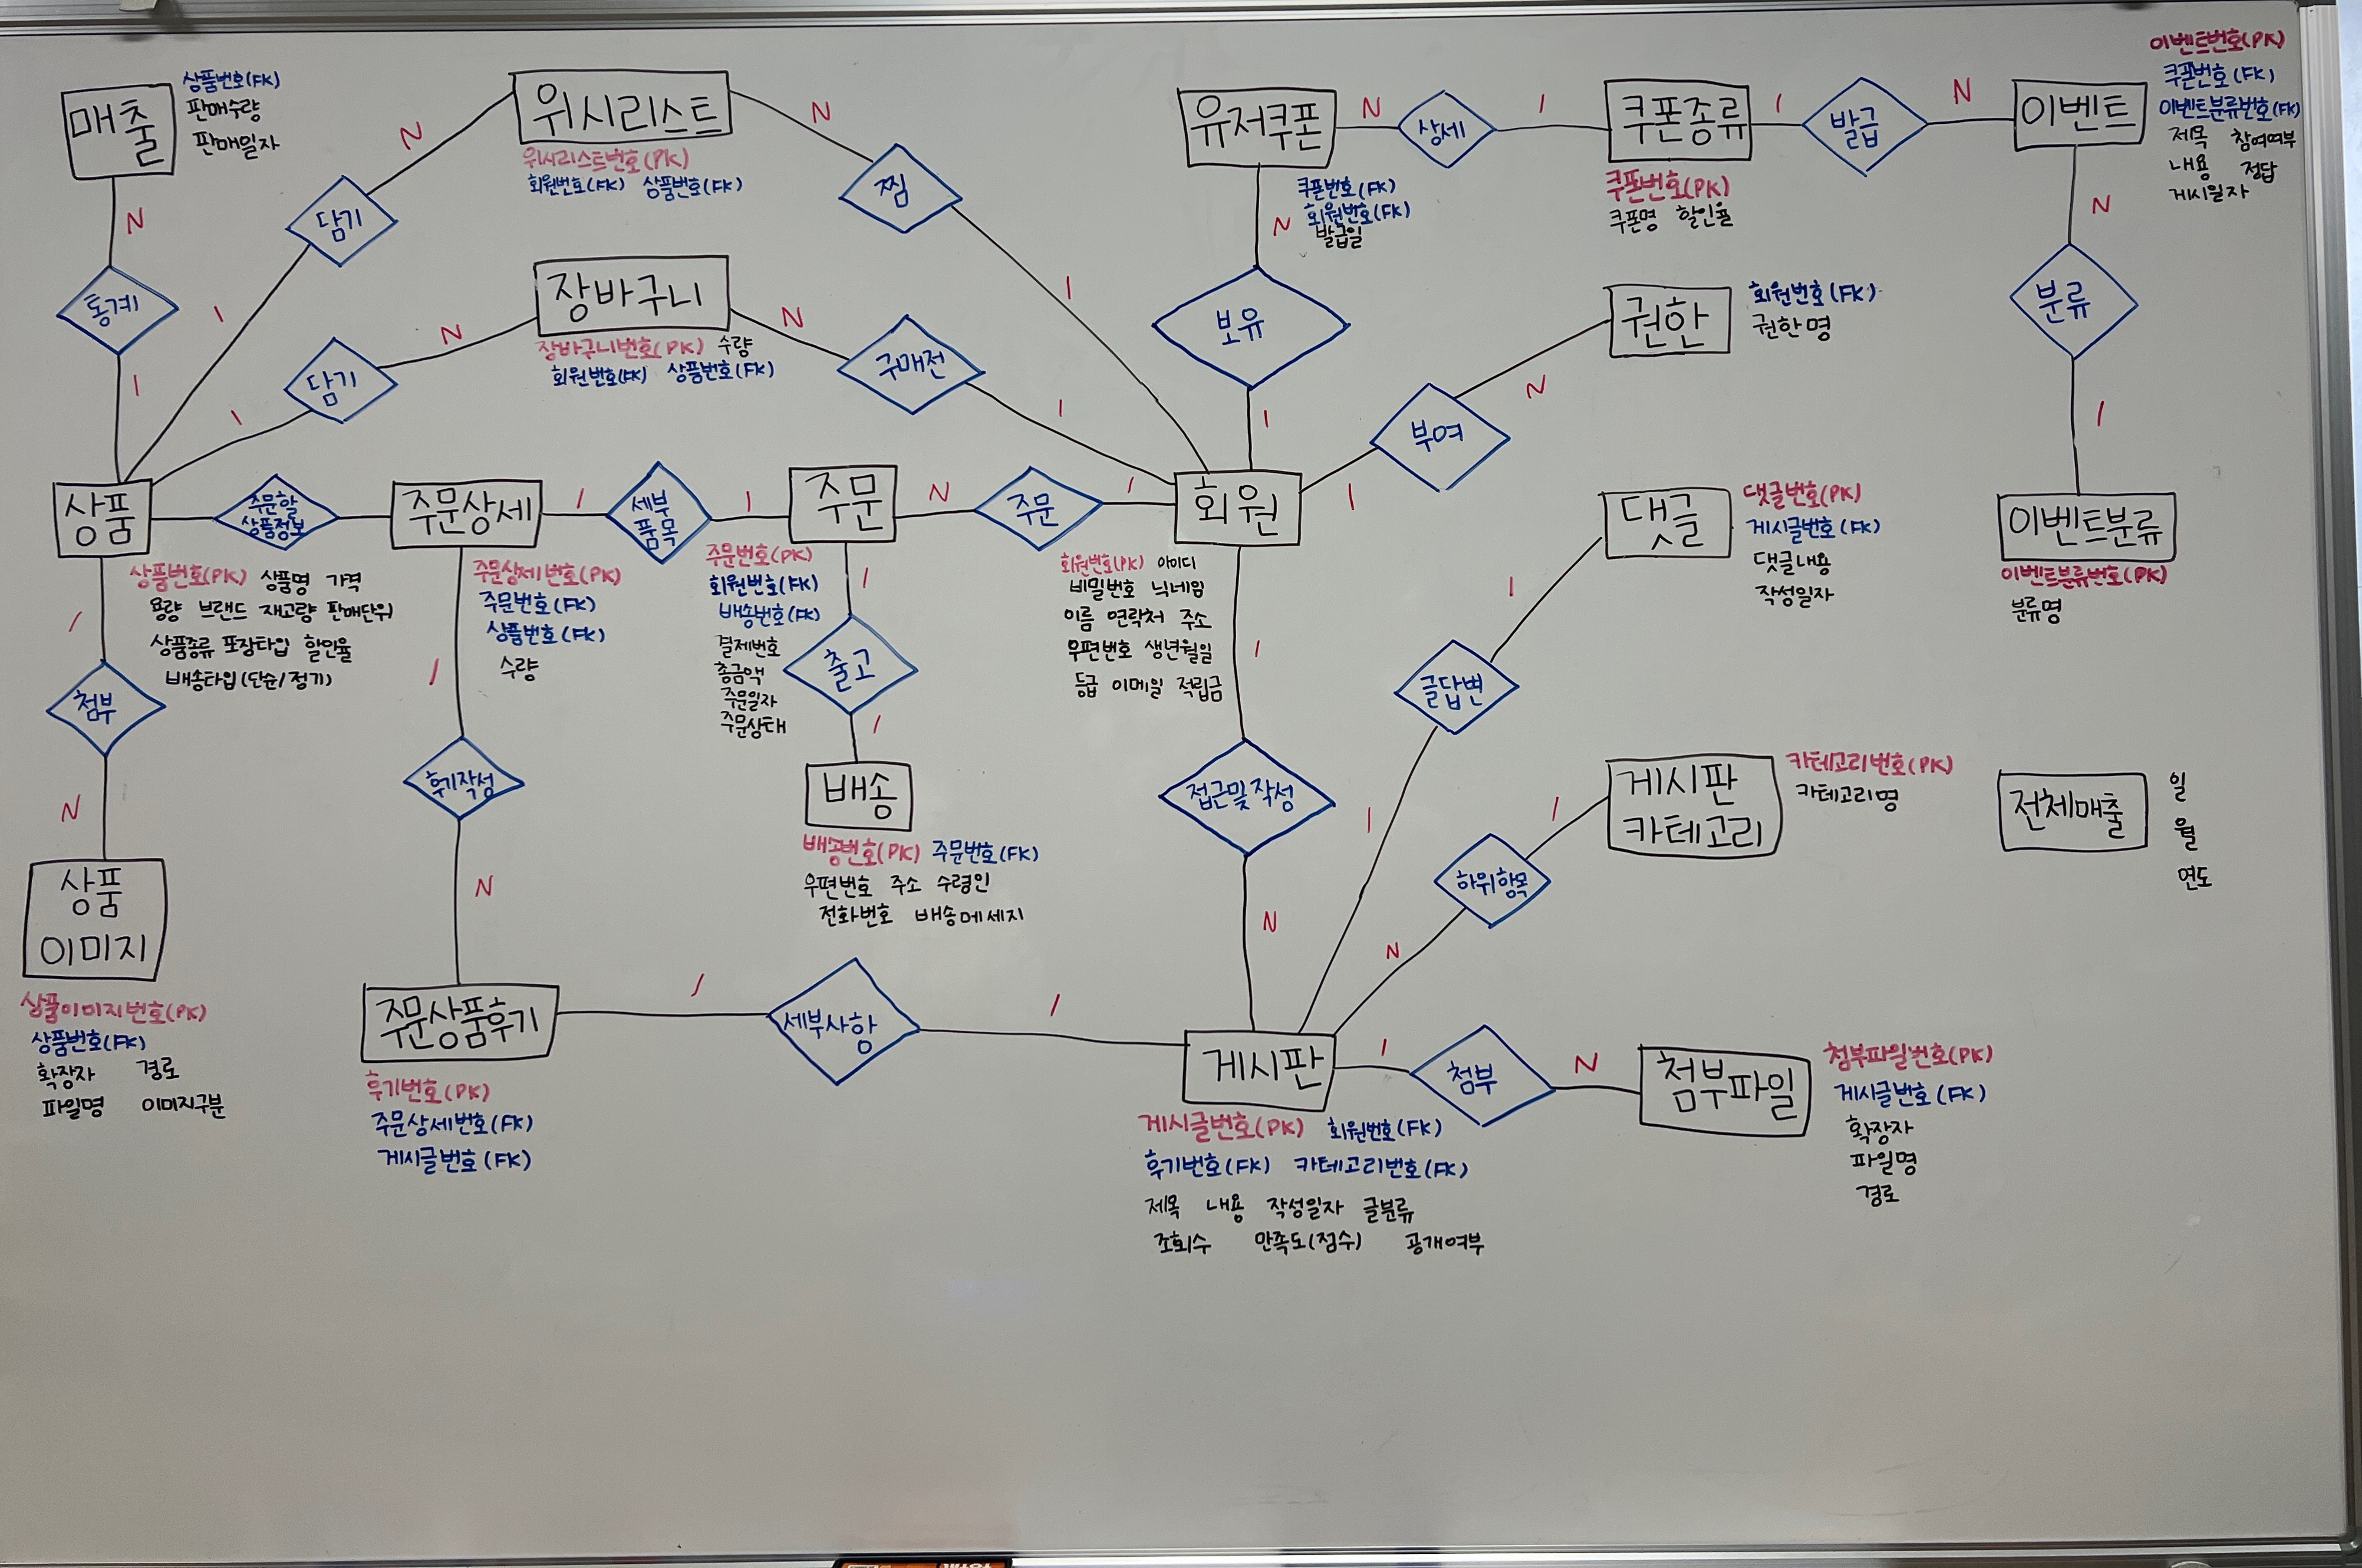 매출
상품번호(FK)
판매수량
판매일자
N
통계
1
위시리스트
위시리스트번호(PK)
회원번호(FK) 상품번호(FK)
N
담기
1
N
찜
1
장바구니
장바구니번호(PK) 수량
회원번호(FK) 상품번호(FK)
N
담기
1
N
구매전
1
유저쿠폰
쿠폰번호(FK)
회원번호(FK)
발급일
N
상세
1
쿠폰종류
쿠폰번호(PK)
쿠폰명 할인율
1
발급
N
이벤트
이벤트번호(PK)
쿠폰번호(FK)
이벤트분류번호(FK)
제목 참여여부
내용 정답
게시일자
N
보유
1
권한
회원번호(FK)
권한명
N
부여
1
N
분류
1
이벤트분류
이벤트분류번호(PK)
분류명
상품
상품번호(PK) 상품명 가격
용량 브랜드 재고량 판매단위
상품종류 포장타입 할인율
배송타입(단순/정기)
주문할
상품정보
주문상세
주문상세번호(PK)
주문번호(FK)
상품번호(FK)
수량
1
세부
품목
1
주문
주문번호(PK)
회원번호(FK)
배송번호(FK)
결제번호
총금액
주문일자
주문상태
N
주문
1
회원
회원번호(PK) 아이디
비밀번호 닉네임
이름 연락처 주소
우편번호 생년월일
등급 이메일 적립금
댓글
댓글번호(PK)
게시글번호(FK)
댓글내용
작성일자
1
글답변
1
1
첨부
N
상품
이미지
상품이미지번호(PK)
상품번호(FK)
확장자 경로
파일명 이미지구분
1
후기작성
N
1
출고
1
배송
배송번호(PK) 주문번호(FK)
우편번호 주소 수령인
전화번호 배송메세지
1
접근및작성
N
게시판
카테고리
카테고리번호(PK)
카테고리명
1
하위항목
N
전체매출
일
월
연도
주문상품후기
후기번호(PK)
주문상세번호(FK)
게시글번호(FK)
1
세부사항
1
게시판
게시글번호(PK) 회원번호(FK)
후기번호(FK) 카테고리번호(FK)
제목 내용 작성일자 글분류
조회수 만족도(점수) 공개여부
1
첨부
N
첨부파일
첨부파일번호(PK)
게시글번호(FK)
확장자
파일명
경로